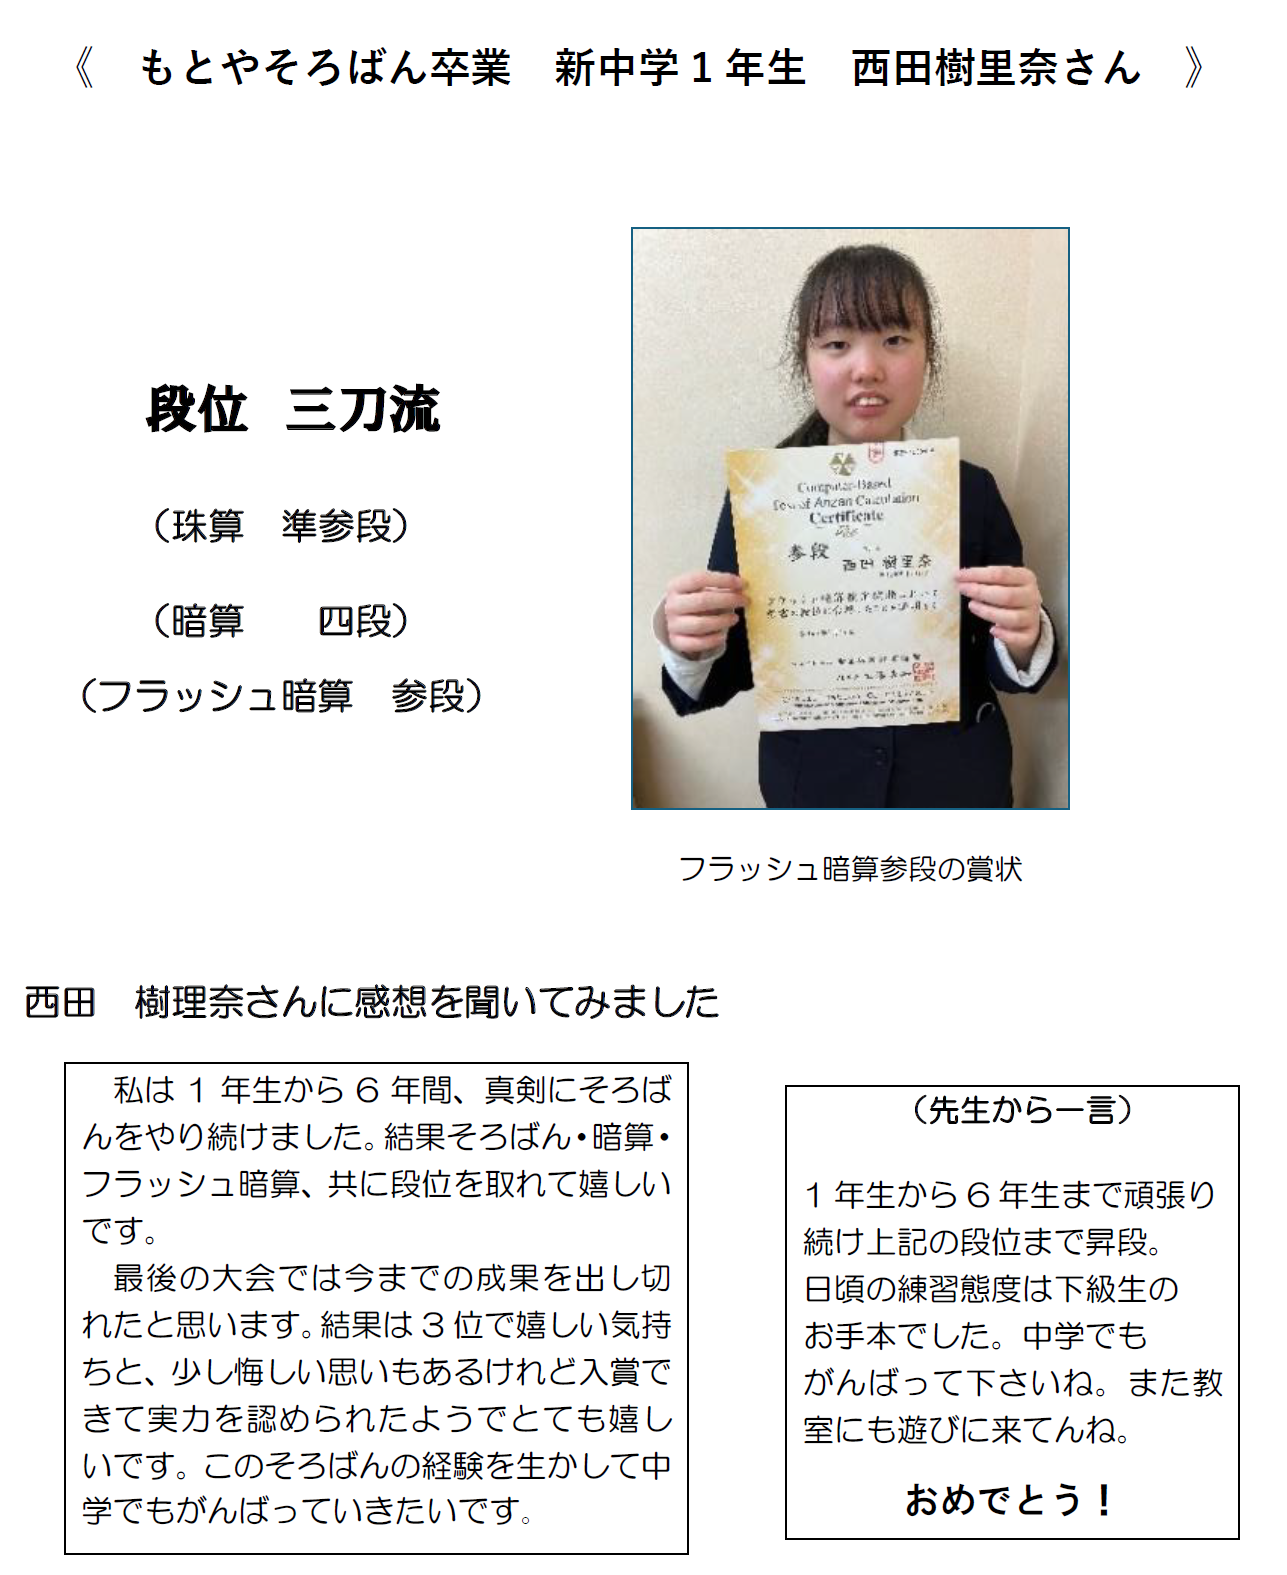 《　もとやそろばん卒業　新中学１年生　西田樹里奈さん　》
段位　三刀流
（珠算　準参段）
（暗算　　四段）
（フラッシュ暗算　参段）
Computer-Based
Test of Anzan Calculation
Certificate
参段
西田 樹里奈
フラッシュ暗算参段の賞状
西田　樹理奈さんに感想を聞いてみました
私は 1 年生から 6 年間、真剣にそろば
んをやり続けました。結果そろばん・暗算・
フラッシュ暗算、共に段位を取れて嬉しい
です。
最後の大会では今までの成果を出し切
れたと思います。結果は 3 位で嬉しい気持
ちと、少し悔しい思いもあるけれど入賞で
きて実力を認められたようでとても嬉し
いです。このそろばんの経験を生かして中
学でもがんばっていきたいです。
（先生から一言）
1 年生から 6 年生まで頑張り
続け上記の段位まで昇段。
日頃の練習態度は下級生の
お手本でした。中学でも
がんばって下さいね。また教
室にも遊びに来てんね。
おめでとう！